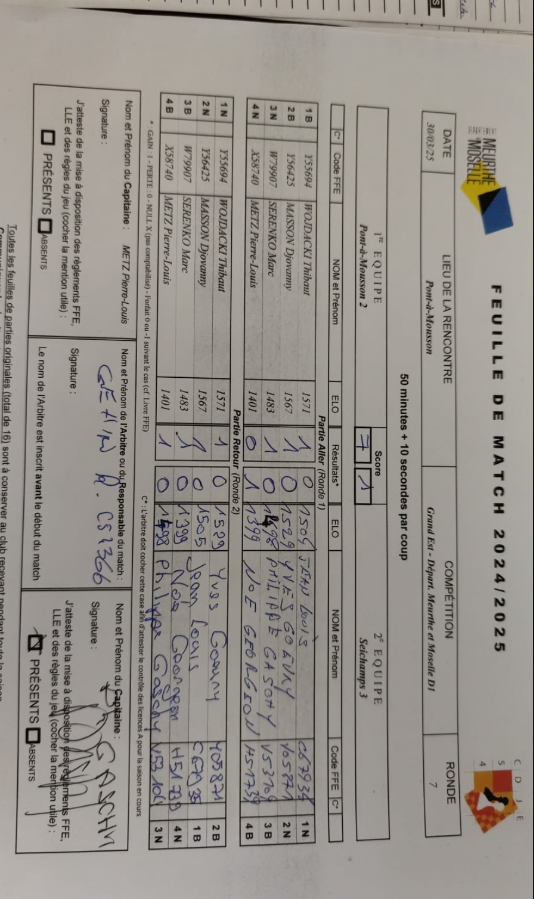 MEURTHE
MOSELLE
FEUILLE DE MATCH 2024/2025
C D J E
5 4
DATE LIEU DE LA RENCONTRE COMPÉTITION RONDE
30/03/25 Pont-à-Mousson Grand Est - Départ. Meurthe et Moselle D1 7
50 minutes + 10 secondes par coup
1re EQUIPE Score 2e EQUIPE
Pont-à-Mousson 2 7 1 Seichamps 3
C* Code FFE NOM et Prénom ELO Résultats* ELO NOM et Prénom Code FFE C*
Partie Aller (Ronde 1)
1 B Y55694 WOJDACKI Thibaut 1571 1 0 1505 JEAN LOUIS 1 N
2 B Y56425 MASSON Djovanny 1567 1 0 1529 YVES 2 N
3 N W79907 SERENKO Marc 1483 1 0 PHILIPPE GASCHY 3 B
4 N X58740 METZ Pierre-Louis 1401 0 1 1399 NOE GEORGEON 4 B
Partie Retour (Ronde 2)
1 N Y55694 WOJDACKI Thibaut 1571 1 0 1529 Yves 2 B
2 N Y56425 MASSON Djovanny 1567 1 0 1505 Jean Louis 1 B
3 B W79907 SERENKO Marc 1483 1 0 1399 Noe Georgeon 4 N
4 B X58740 METZ Pierre-Louis 1401 1 0 Philippe Gaschy 3 N
* GAIN : 1 - PERTE : 0 - NULL X (pas comptabilisé) - Forfait 0 ou -1 suivant le cas (cf. Livre FFE) C* : L'arbitre doit cocher cette case afin d'attester le contrôle des licences A pour la saison en cours
Nom et Prénom du Capitaine : METZ Pierre-Louis
Signature :
J'atteste de la mise à disposition des règlements FFE,
LLE et des règles du jeu (cocher la mention utile) :
PRÉSENTS ABSENTS
Nom et Prénom de l'Arbitre ou du Responsable du match :
GEHIN
Signature :
Le nom de l'Arbitre est inscrit avant le début du match
Nom et Prénom du Capitaine :
GASCHY
Signature :
J'atteste de la mise à disposition des règlements FFE,
LLE et des règles du jeu (cocher la mention utile) :
PRÉSENTS ABSENTS
Toutes les feuilles de parties originales (total de 16) sont à conserver au club recevant pendant toute la saison